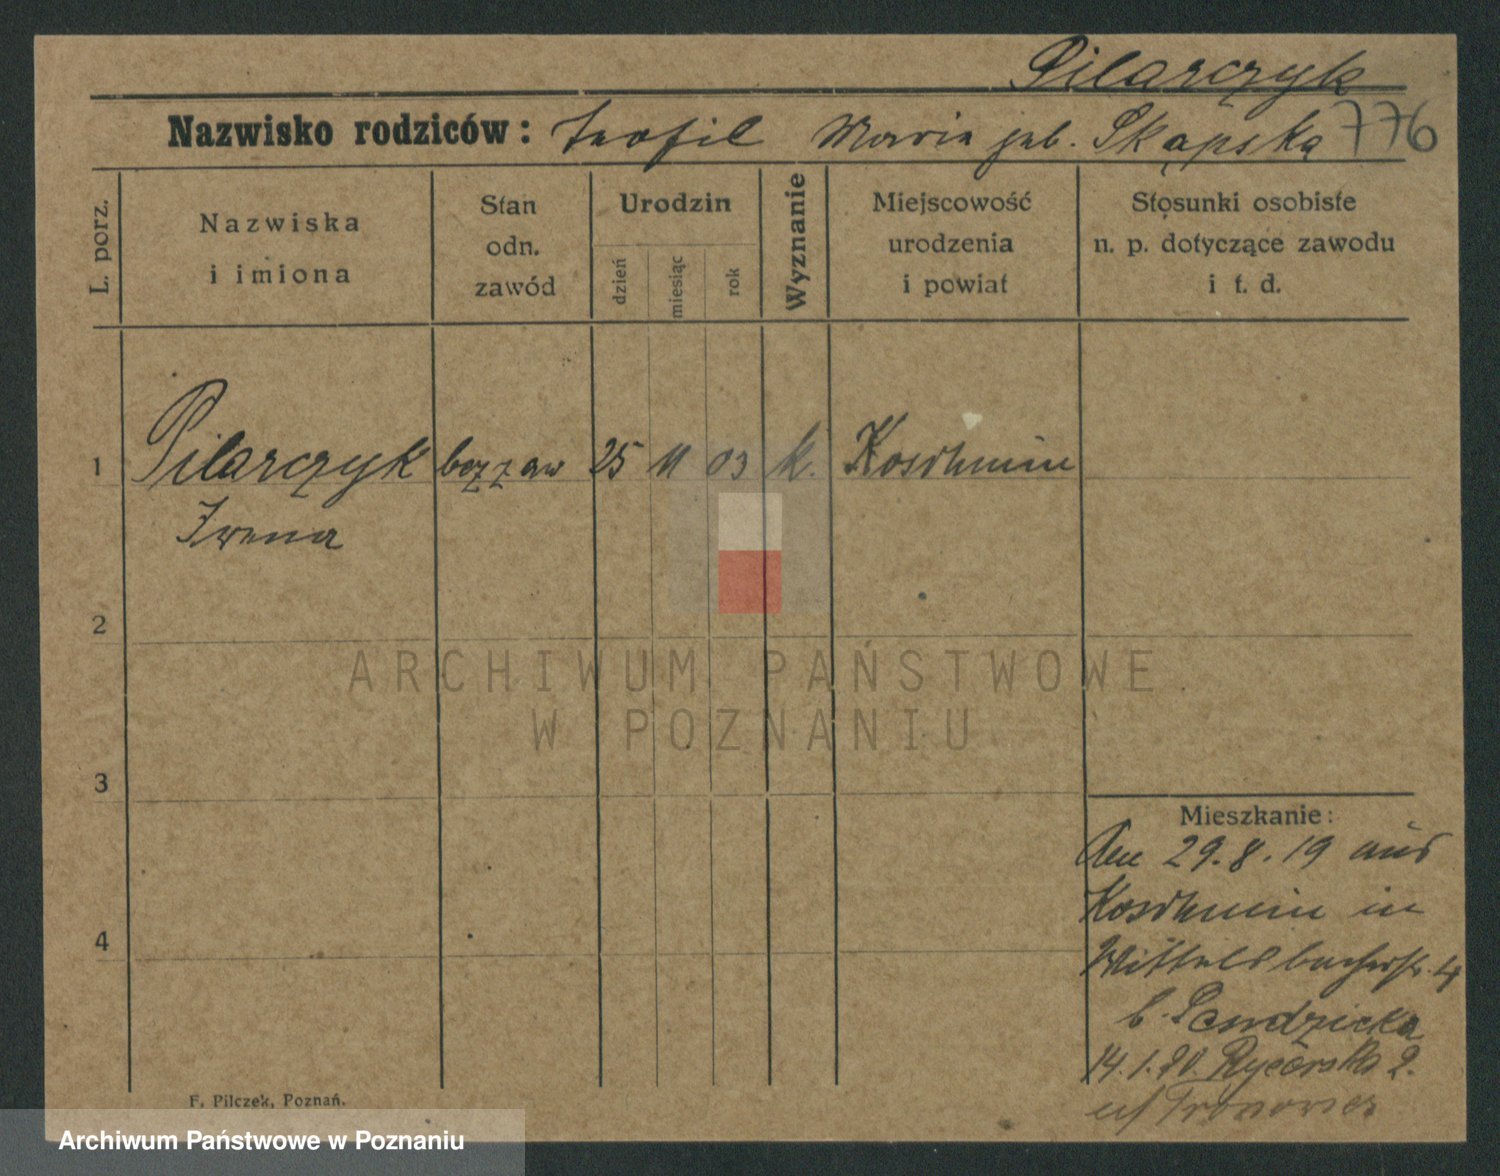 Pilarczyk
Nazwisko rodziców: Teofil Maria geb. Skąpska 776
L. porz.
Nazwiska
i imiona
Stan
odn.
zawód
Urodzin
dzień
miesiąc
rok
Wyznanie
Miejscowość
urodzenia
i powiat
Stosunki osobiste
n. p. dotyczące zawodu
i t. d.
1 Pilarczyk bez zaw 25 11 03 k. Koschmin
Irena
2
3
4
Mieszkanie:
Den 29.8.19 aus
Koschmin in
Wittelsbacherstr. 4
b. Pendzicka
14.1.20. Rycerska 2.
F. Pilczek, Poznań.
ARCHIWUM PAŃSTWOWE
W POZNANIU
Archiwum Państwowe w Poznaniu